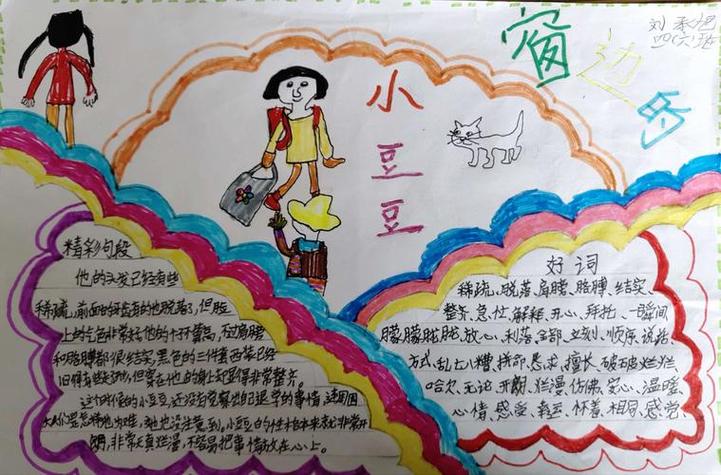 窗边的
小豆豆
刘承旭
四(六)班
精彩句段
他的头发已经有些
稀疏,前面的牙齿有的也脱落了,但脸
上的气色非常好,他的个子不算高,不过肩膀
和胳膊都很结实,黑色的三件套西装已经
旧得有些走形,但穿在他的身上却显得非常整齐。
这时候的小豆豆,还没有觉察
她也没注意到,小豆豆的性格本来就非常开
朗,非常天真烂漫,不容易把事情放在心上。
好词
稀疏、脱落、肩膀、胳膊、结实、
整齐、急忙、解释、开心、拜托、一瞬间
朦朦胧胧、放心、利落、全部、立刻、顺序、说话
方式、乱七八糟、拼命、恳求、擅长、破破烂烂
哈欠、无论、开朗、烂漫、仿佛、安心、温暖、
心情、感觉、幸运、怀着、相同、感觉、